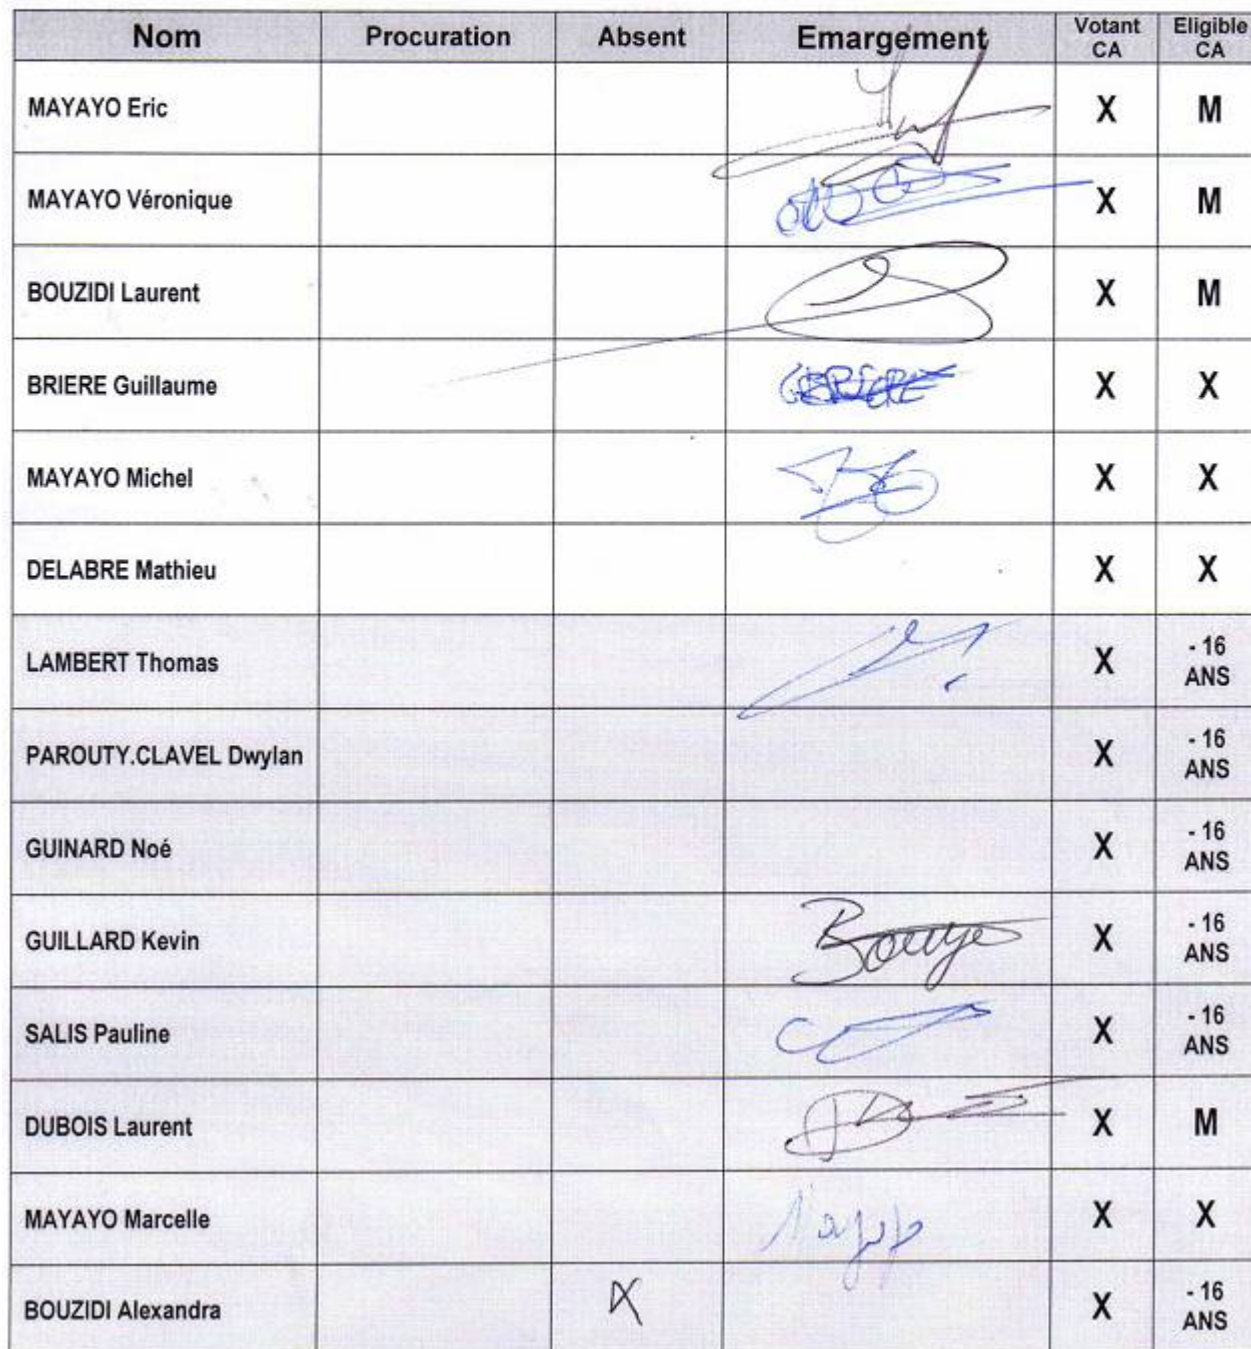 Nom Procuration Absent Emargement Votant CA Eligible CA
MAYAYO Eric X M
MAYAYO Véronique X M
BOUZIDI Laurent X M
BRIERE Guillaume X X
MAYAYO Michel X X
DELABRE Mathieu X X
LAMBERT Thomas X - 16 ANS
PAROUTY.CLAVEL Dwylan X - 16 ANS
GUINARD Noé X - 16 ANS
GUILLARD Kevin X - 16 ANS
SALIS Pauline X - 16 ANS
DUBOIS Laurent X M
MAYAYO Marcelle X X
BOUZIDI Alexandra X X - 16 ANS